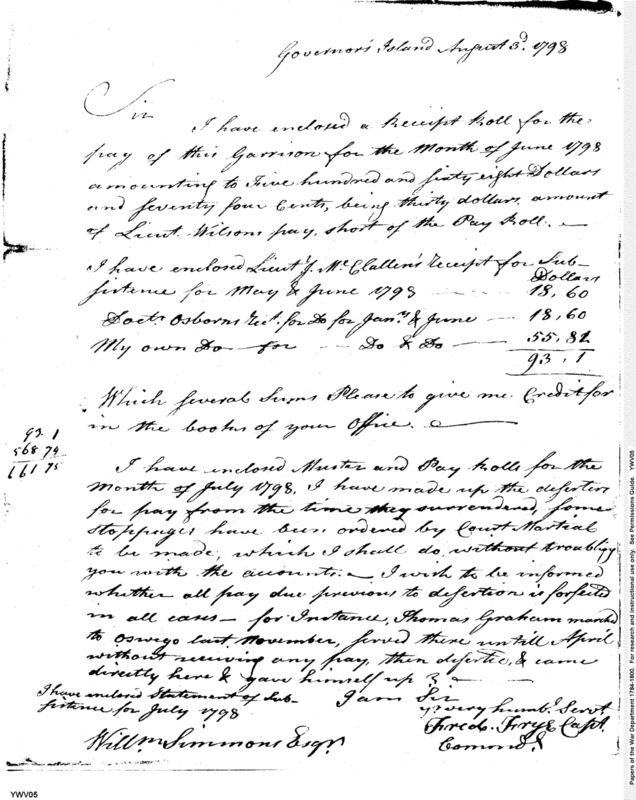 Governor's Island August 3d. 1798
Sir
I have enclosed a Receipt Roll for the
pay of this Garrison for the Month of June 1798
amounting to Five hundred and sixty eight Dollars
and seventy four Cents, being thirty dollars, amount
of Lieut. Wilsons pay, short of the Pay Roll. —
I have enclosed Lieut. J. McClallen's receipt for Sub-
Dollars
sistence for May & June 1798 — 18,60
Doctr. Osborns rect. for Do for Jany. & June — 18,60
My own Do — for — Do & Do — 55,81
93,1
Which several Sums Please to give me Credit for
in the books of your Office. —
93 1
568 74
661 75
I have enclosed Muster and Pay Rolls for the
Month of July 1798, I have made up the deserters
for pay from the time they surrendered, some
stoppages have been ordered by Court Martial
to be made, which I shall do, without troubling
you with the accounts. — I wish to be informed
whether all pay due previous to desertion is forfeited
in all cases — for Instance, Thomas Graham marched
to Oswego last November, served there untill April
without receiving any pay, then deserted, & came
directly here & gave himself up? —
I have enclosed Statement of Sub-
sistence for July 1798
I am Sir
yr. very humbl. Servt.
Fredk. Frye Capt.
Commdg
Willm. Simmons Esqr.
YWV05
Papers of the War Department 1784-1800. For research and instructional use only. See Permissions Guide. YWV05